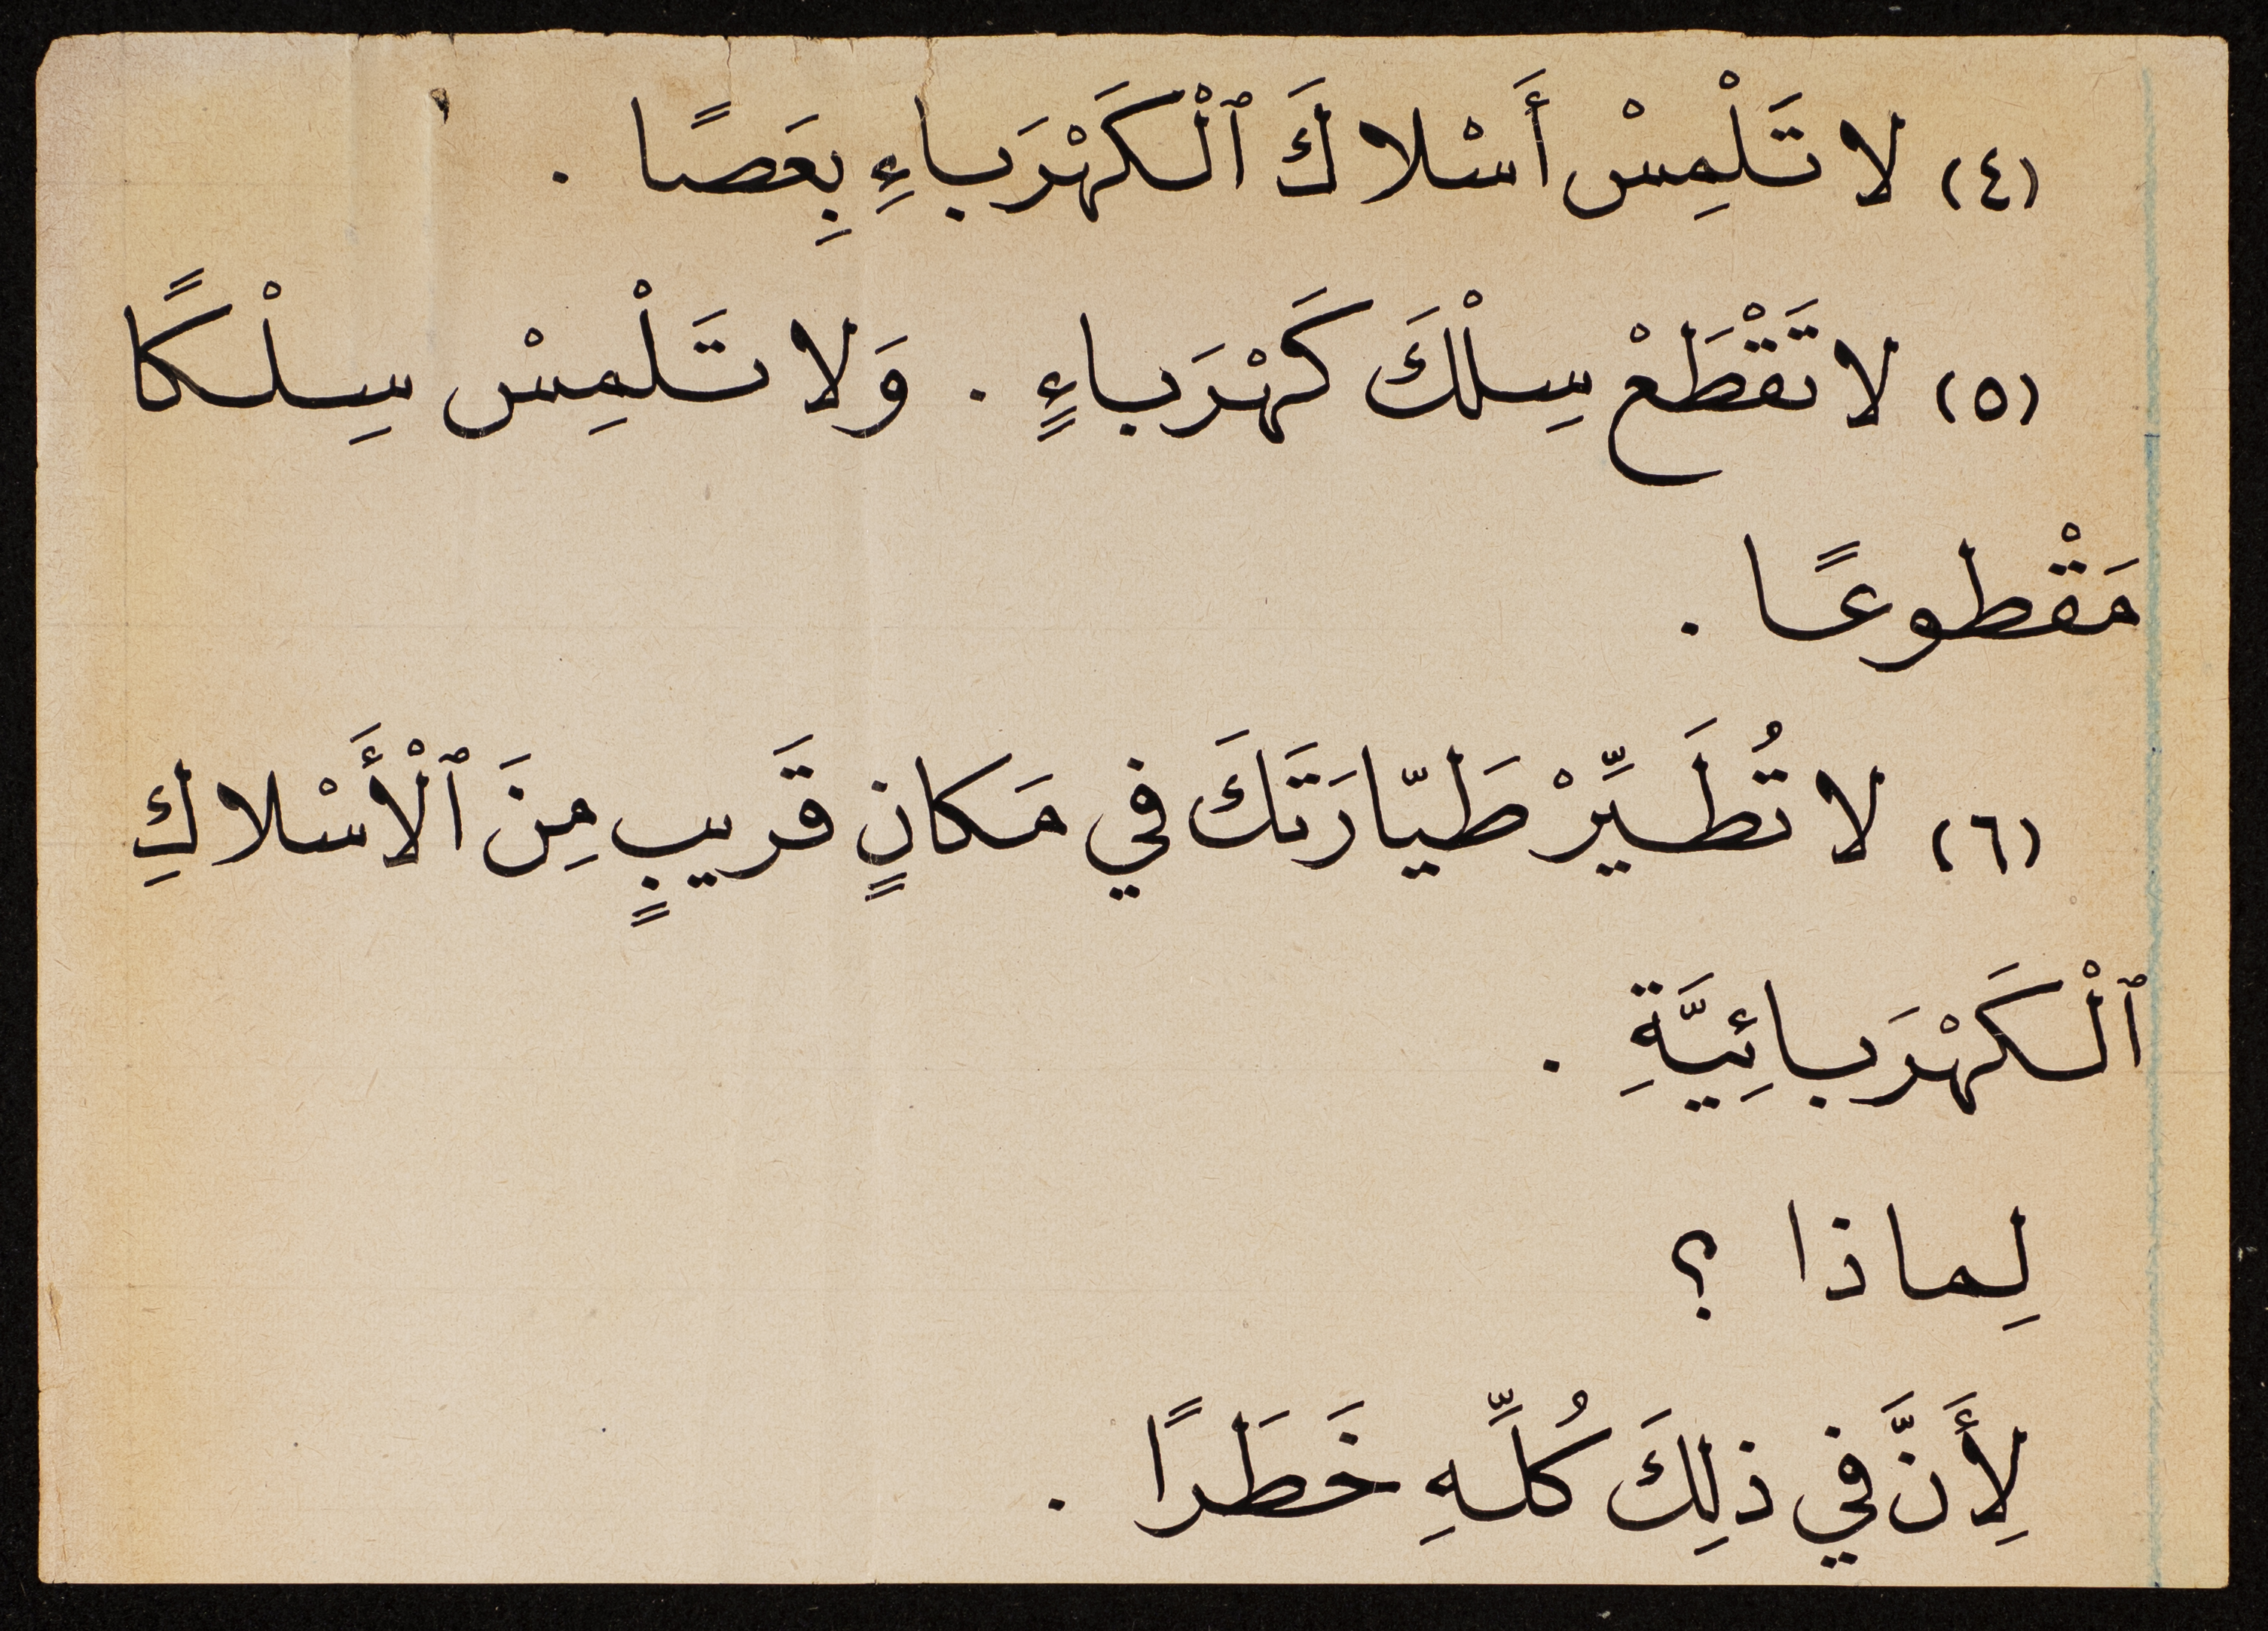 (٤) لا تَلْمِسْ أَسْلاكَ ٱلْكَهْرَباءِ بِعَصًا .
(٥) لا تَقْطَعْ سِلْكَ كَهْرَباءٍ . وَلا تَلْمِسْ سِلْكًا
مَقْطوعًا .
(٦) لا تُطَيِّرْ طَيّارَتَكَ في مَكانٍ قَريبٍ مِنَ ٱلْأَسْلاكِ
ٱلْكَهْرَبائِيَّةِ .
لِماذا ؟
لِأَنَّ في ذلِكَ كُلِّهِ خَطَرًا .